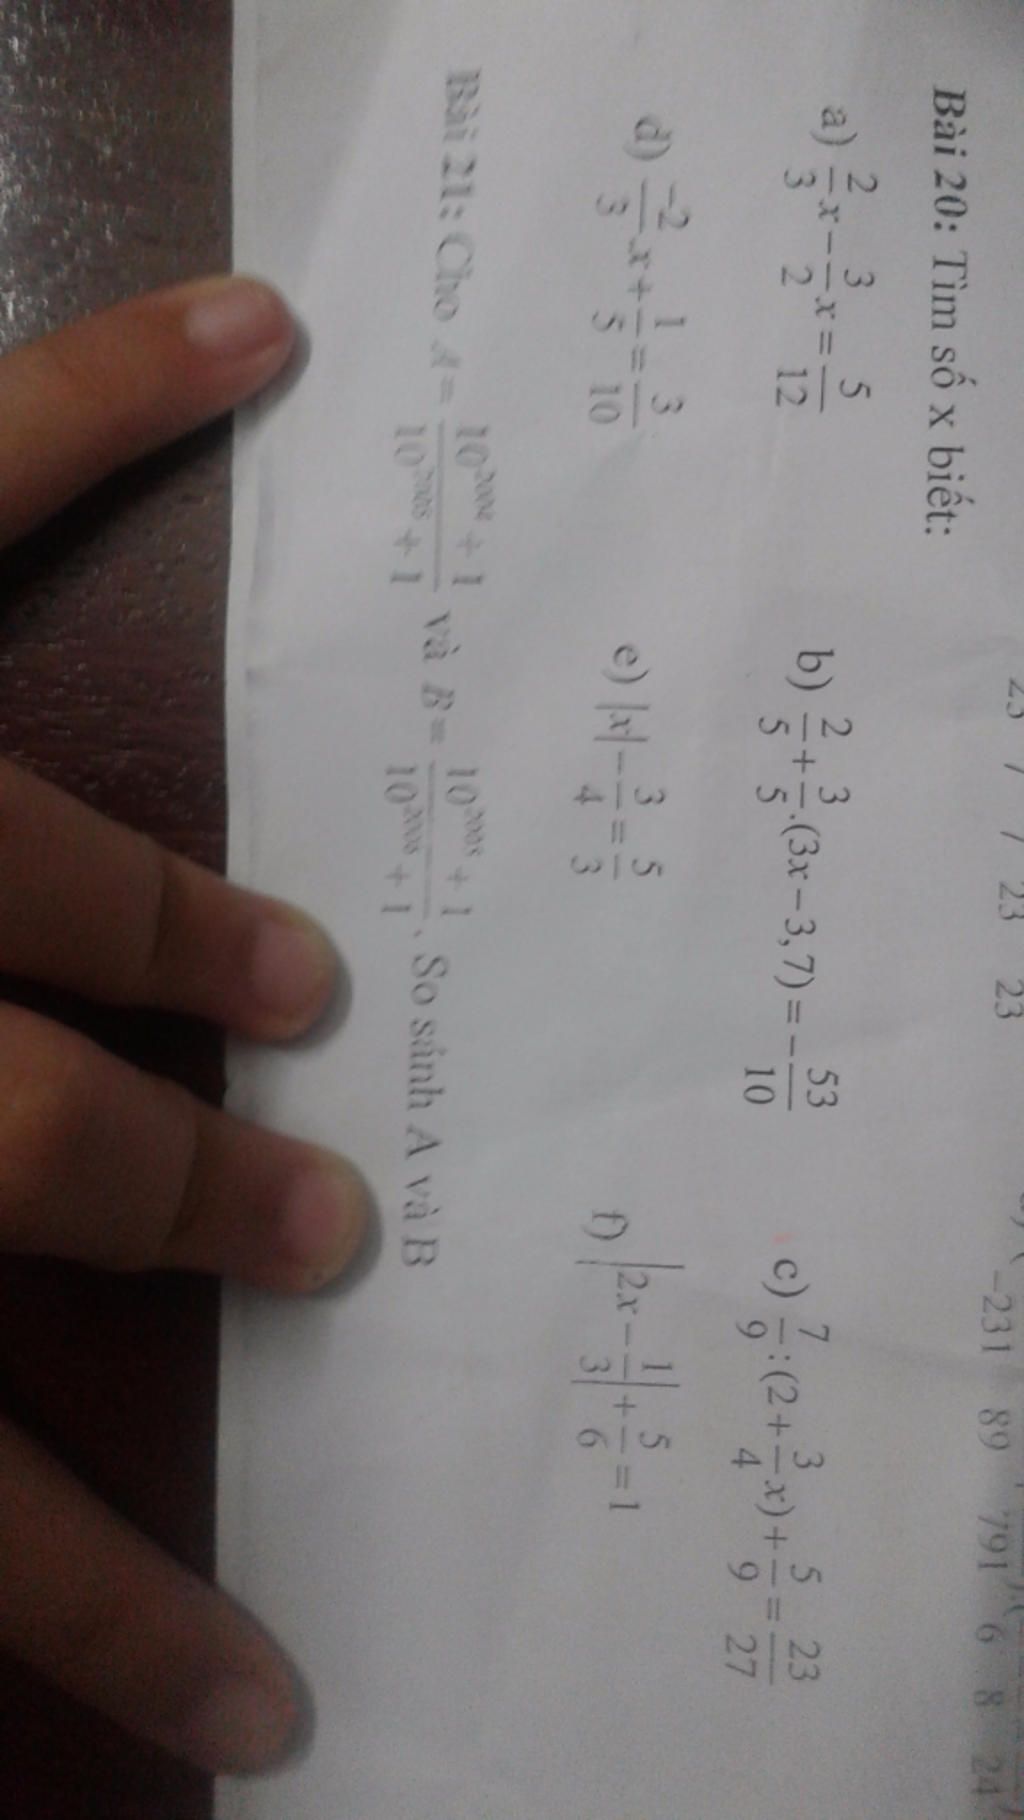 23 7 7 23 23
-231 89 791 6 8 24
Bài 20: Tìm số x biết:
a) 2/3 x - 3/2 x = 5/12 b) 2/5 + 3/5 .(3x - 3,7) = - 53/10 c) 7/9 : (2 + 3/4 x) + 5/9 = 23/27
d) -2/3 .x + 1/5 = 3/10 e) |x| - 3/4 = 5/3 f) |2x - 1/3| + 5/6 = 1
Bài 21: Cho A = (10^2004 + 1)/(10^2005 + 1) và B = (10^2005 + 1)/(10^2006 + 1). So sánh A và B